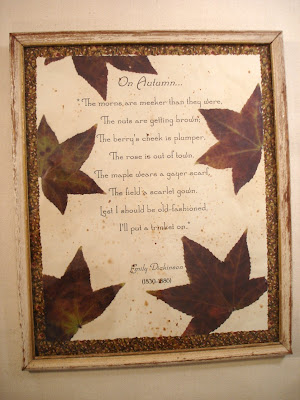 On Autumn...
The morns, are meeker than they were,
The nuts are getting brown;
The berry's cheek is plumper,
The rose is out of town.
The maple wears a gayer scarf,
The field a scarlet gown.
Lest I should be old-fashioned,
I'll put a trinket on.
Emily Dickinson
(1830-1886)